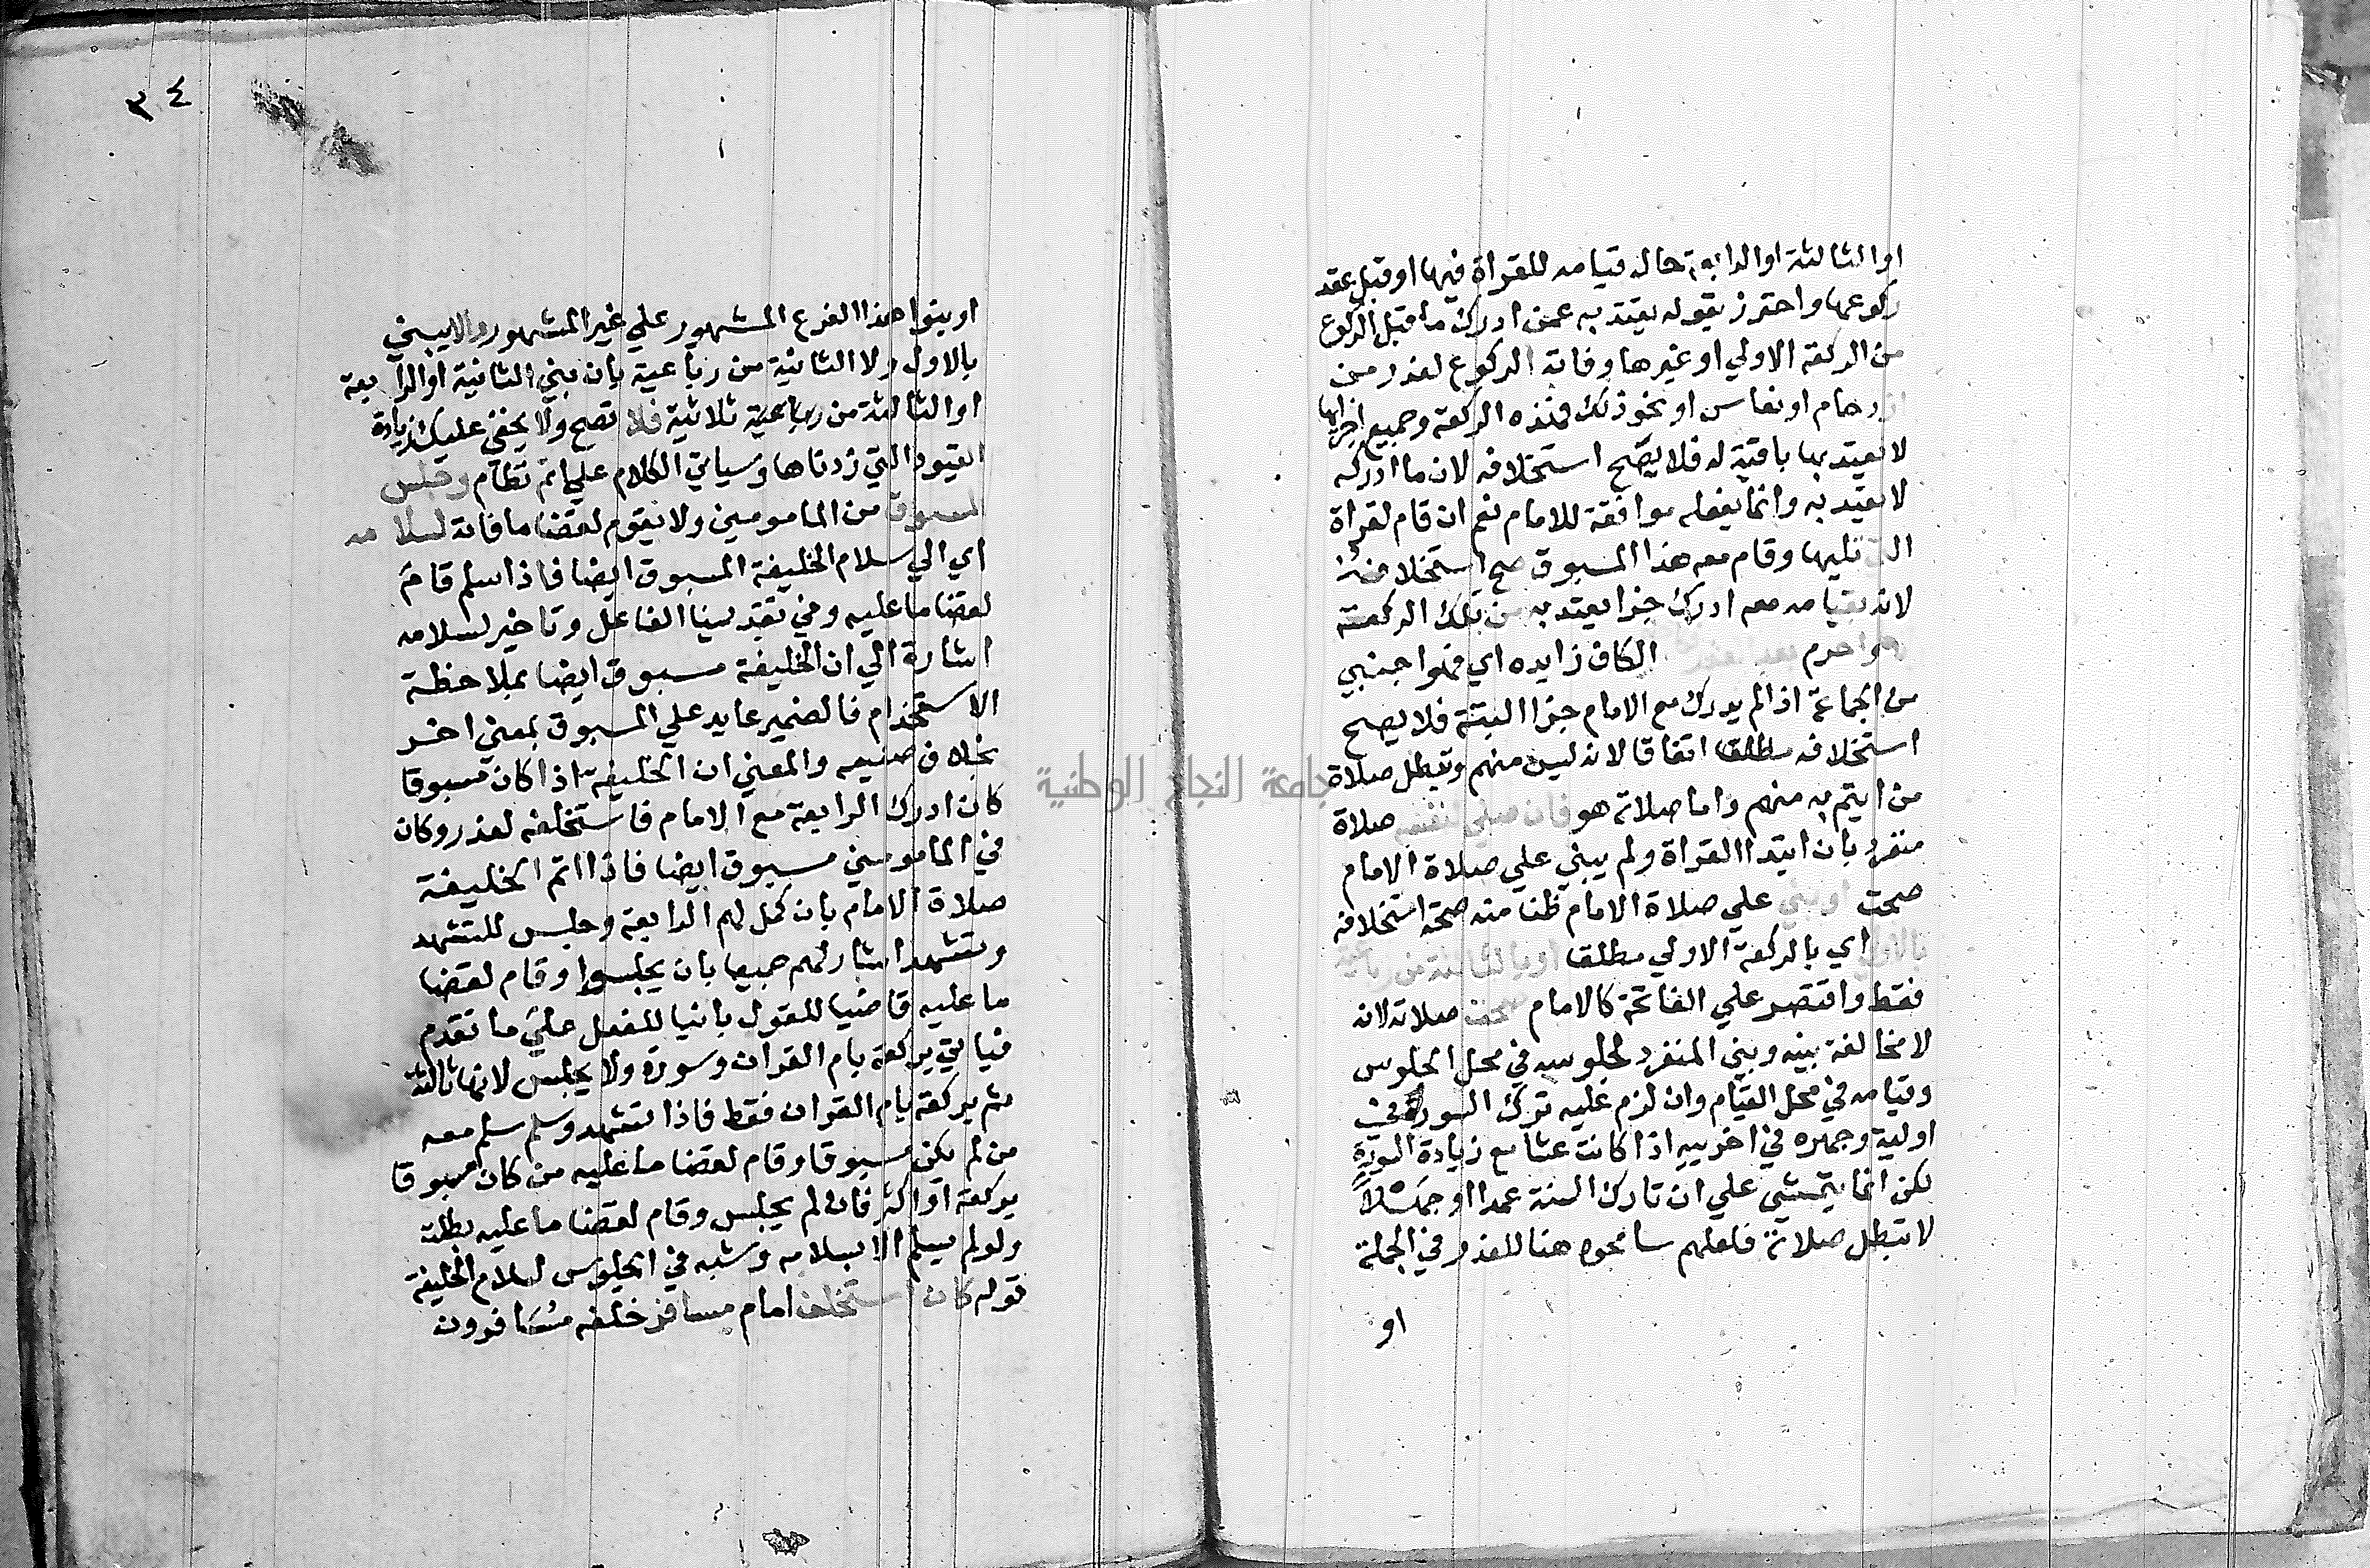 او الثالثة او الرابعة حال قيامه للقراة فيها او قبل عقد
ركوعها واحترز بقوله يعتد به عمن ادرك ما قبل الركوع
من الركعة الاولي او غيرها وفاته الركوع لعذر من
ازدحام او نعاس او نحو ذلك فهذه الركعة وجميع اجزايها
لا يعتد بها باقية له فلا يصح استخلافه لان ما ادركه
لا يعتد به وانما يفعله موافقة للامام نعم ان قام لقراة
التي تليها وقام معه هذا المسبوق صح استخلافه
لانه بقيامه معه ادرك جزا يعتد به من تلك الركعة
احرم بعد العذر الكاف زايده اي فهوا جنبي
من الجماعة اذ لم يدرك مع الامام جزا البتة فلا يصح
استخلافه مطلقا اتفاقا لانه ليس منهم وتبطل صلاة
من ايتم به منهم واما صلاته هو فان صلي لنفسه صلاة
منفرد بان ابتدا القراة ولم يبني علي صلاة الامام
صحت او بني علي صلاة الامام ظنا منه صحة استخلافه
بالاولي اي بالركعة الاولي مطلقا او بالثالثة من رباعية
فقط واقتصر علي الفاتحة كالامام صحت صلاته لانه
لا مخالفة بينه وبين المنفرد لجلوسه في محل الجلوس
وقيامه في محل القيام وان لزم عليه ترك السورة في
اوليية وجهره في اخرييه اذا كانت عشا مع زيادة السورة
لكن انما يتمشي علي ان تارك السنة عمدا او جهلا
لا تبطل صلاته فلعلهم سامحوه هنا للعذر في الجملة
او
٣٤
او بنوا هذا الفرع المشهور علي غير المشهور والا يبني
بالاول ولا الثانية من رباعية بان بني الثانية او الرابعة
او الثالثة من رباعية ثلاثية فلا تصح ولا يخفي عليك زيادة
القيود التي زدناها وسياتي الكلام علي اتم نظام وجلس
المسبوق من المامومين ولا يقوم لقضا ما فاته لسلامه
اي الي سلام الخليفة المسبوق ايضا فاذا سلم قام
لقضا ما عليه وفي تقديمنا الفاعل وتاخير لسلامه
اشارة الي ان الخليفة مسبوق ايضا بملاحظة
الاستخدام فالضمير عايد علي المسبوق بمعني اخر
بخلاف صنيعه والمعني ان الخليفة اذا كان مسبوقا
كان ادرك الرابعة مع الامام فاستخلفه لعذر وكان
في المامومين مسبوق ايضا فاذا اتم الخليفة
صلاة الامام بان كمل لهم الرابعة وجلس للتشهد
وتشهد اشار لهم جميعا بان يجلسوا وقام لقضا
ما عليه قاضيا للقول بانيا للفعل علي ما تقدم
فياتي بركعة بام القران وسورة ولا يجلس لانها ثالثته
ثم بركعة بام القران فقط فاذا تشهد وسلم سلم معه
من لم يكن مسبوقا وقام لقضا ما عليه من كان مسبوقا
بركعة او اكثر فان لم يجلس وقام لقضا ما عليه بطلت
ولو لم يسلم الا بسلامه وشبه في الجلوس لسلام الخليفة
قوله كان استخلف امام مسافر خلفه مسافرون
جامعة النجاح الوطنية